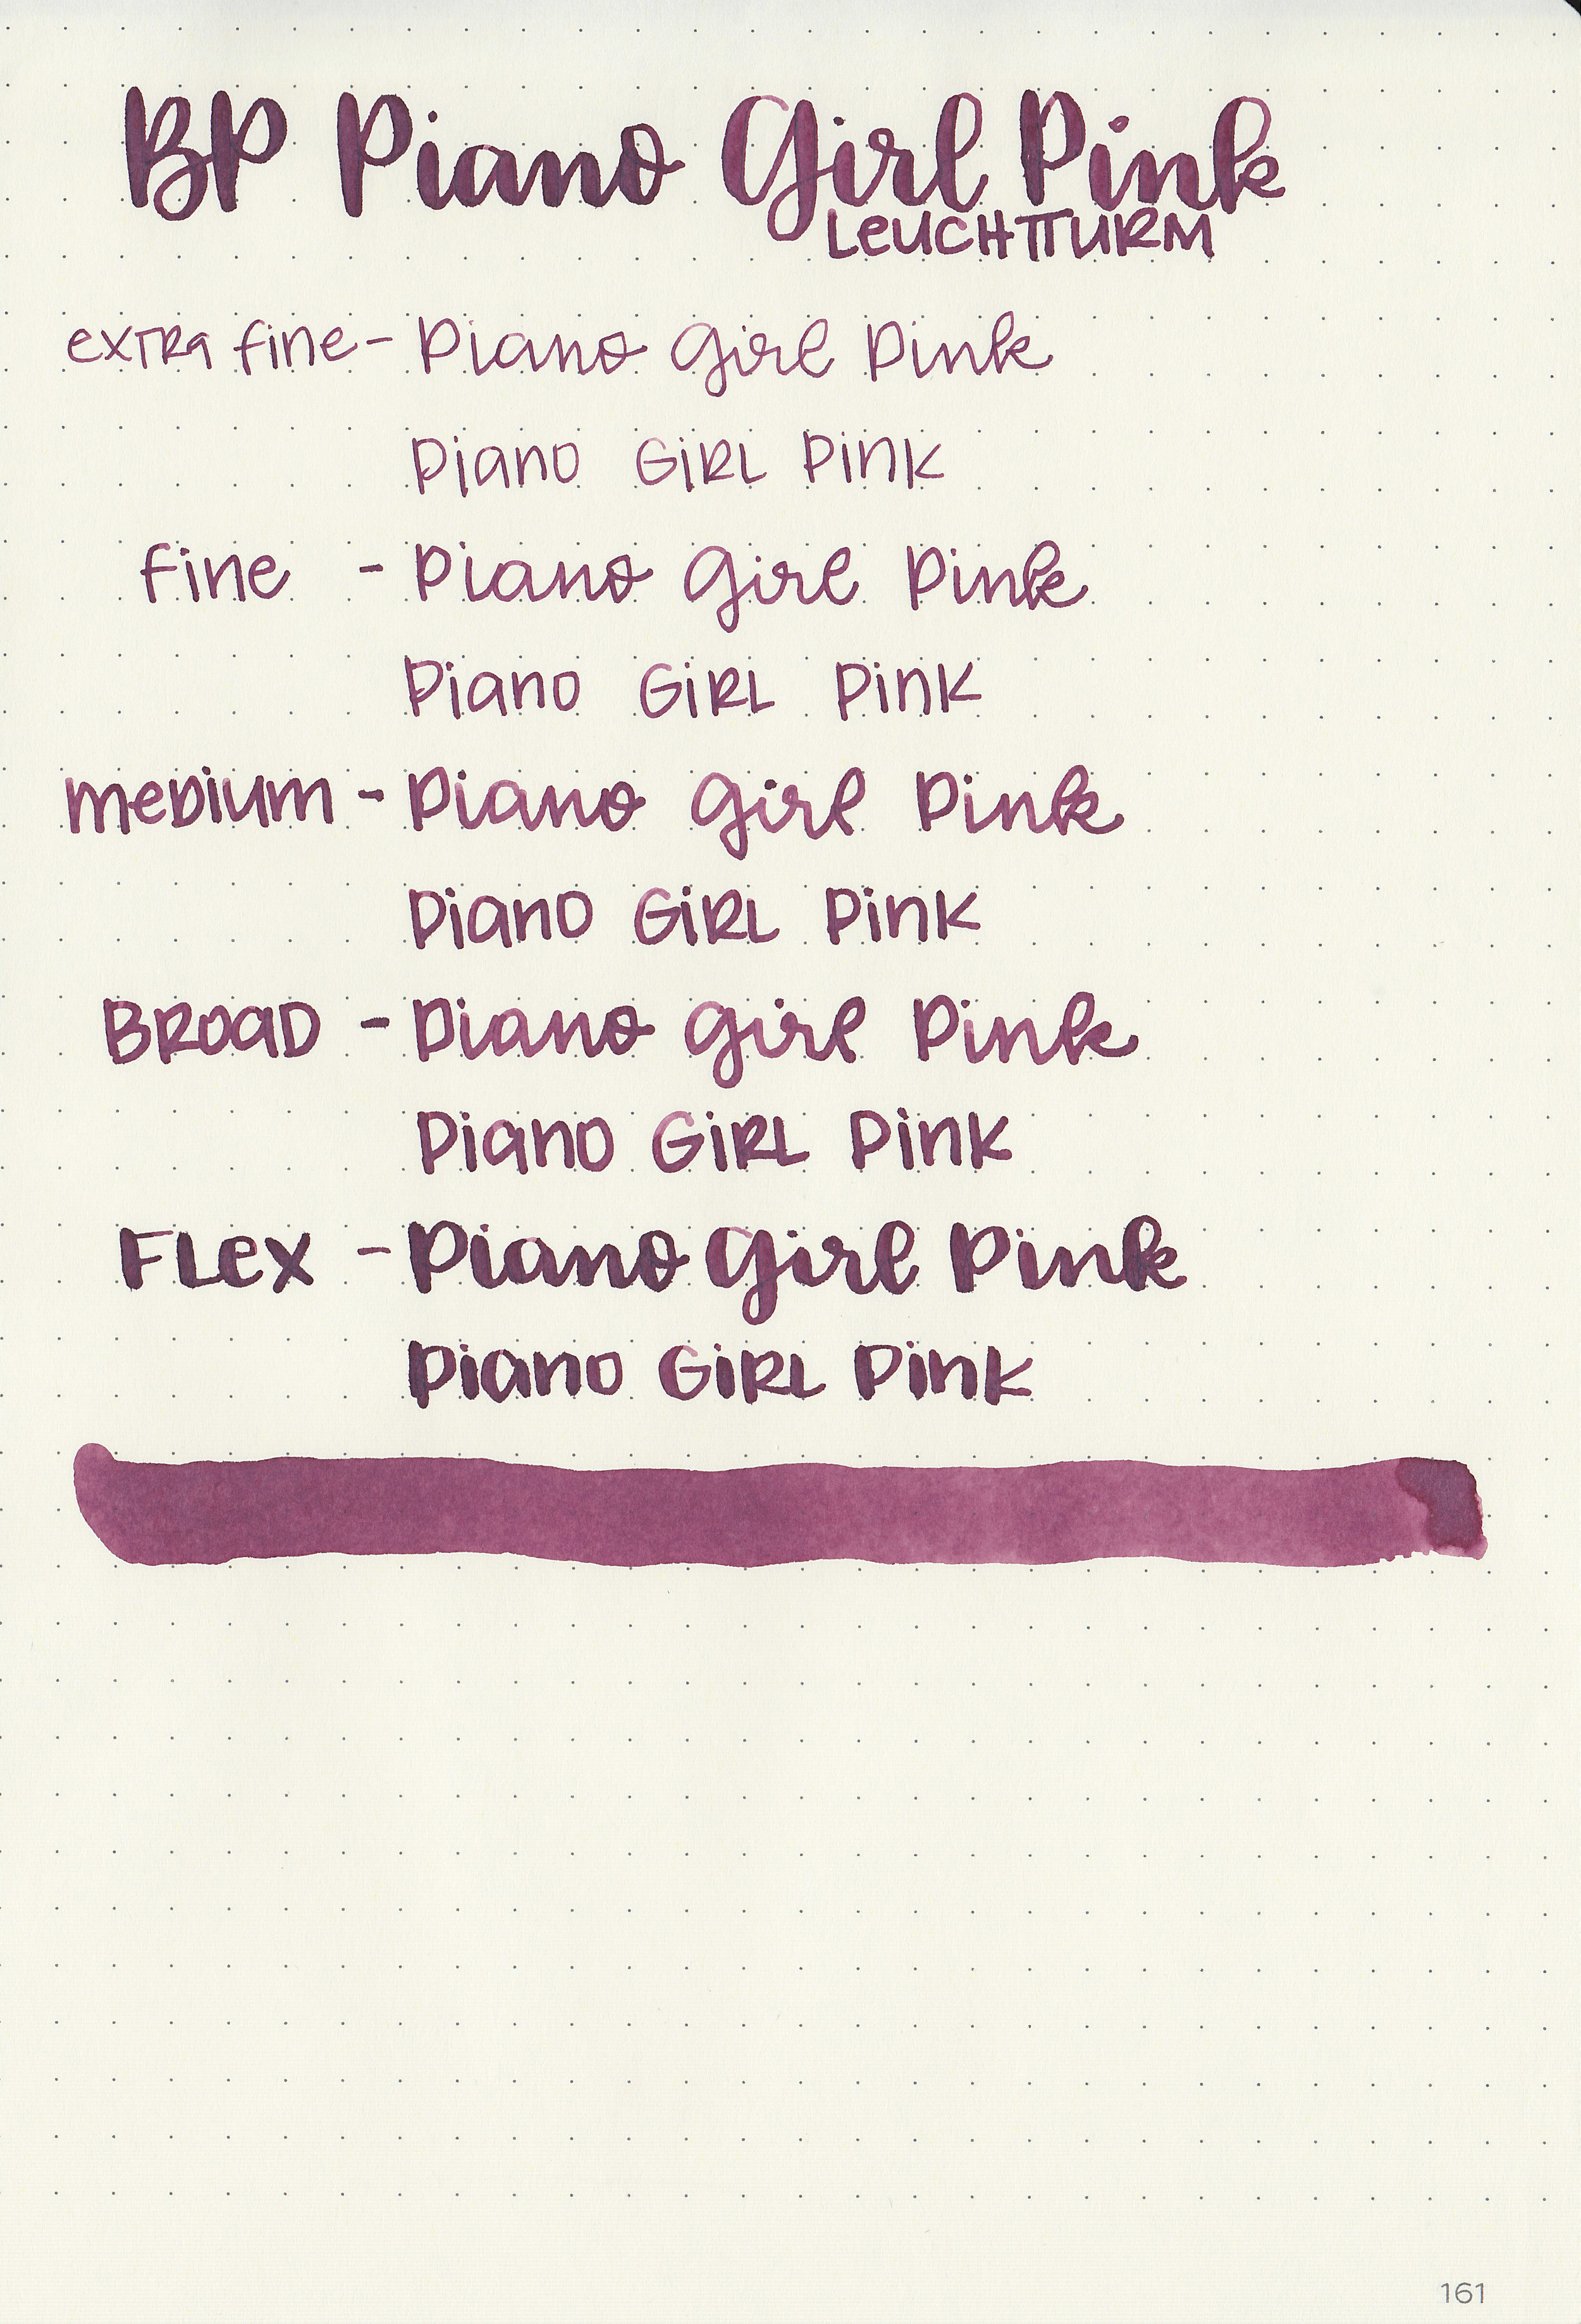 BP Piano Girl Pink
LeUCHTTURM
exTRa fine - Piano Girl Pink
Piano GiRL Pink
fine - Piano Girl Pink
Piano GiRL Pink
meDium - Piano Girl Pink
Piano GiRL Pink
BROaD - Piano Girl Pink
Piano GiRL Pink
FLex - Piano Girl Pink
Piano GiRL Pink
161